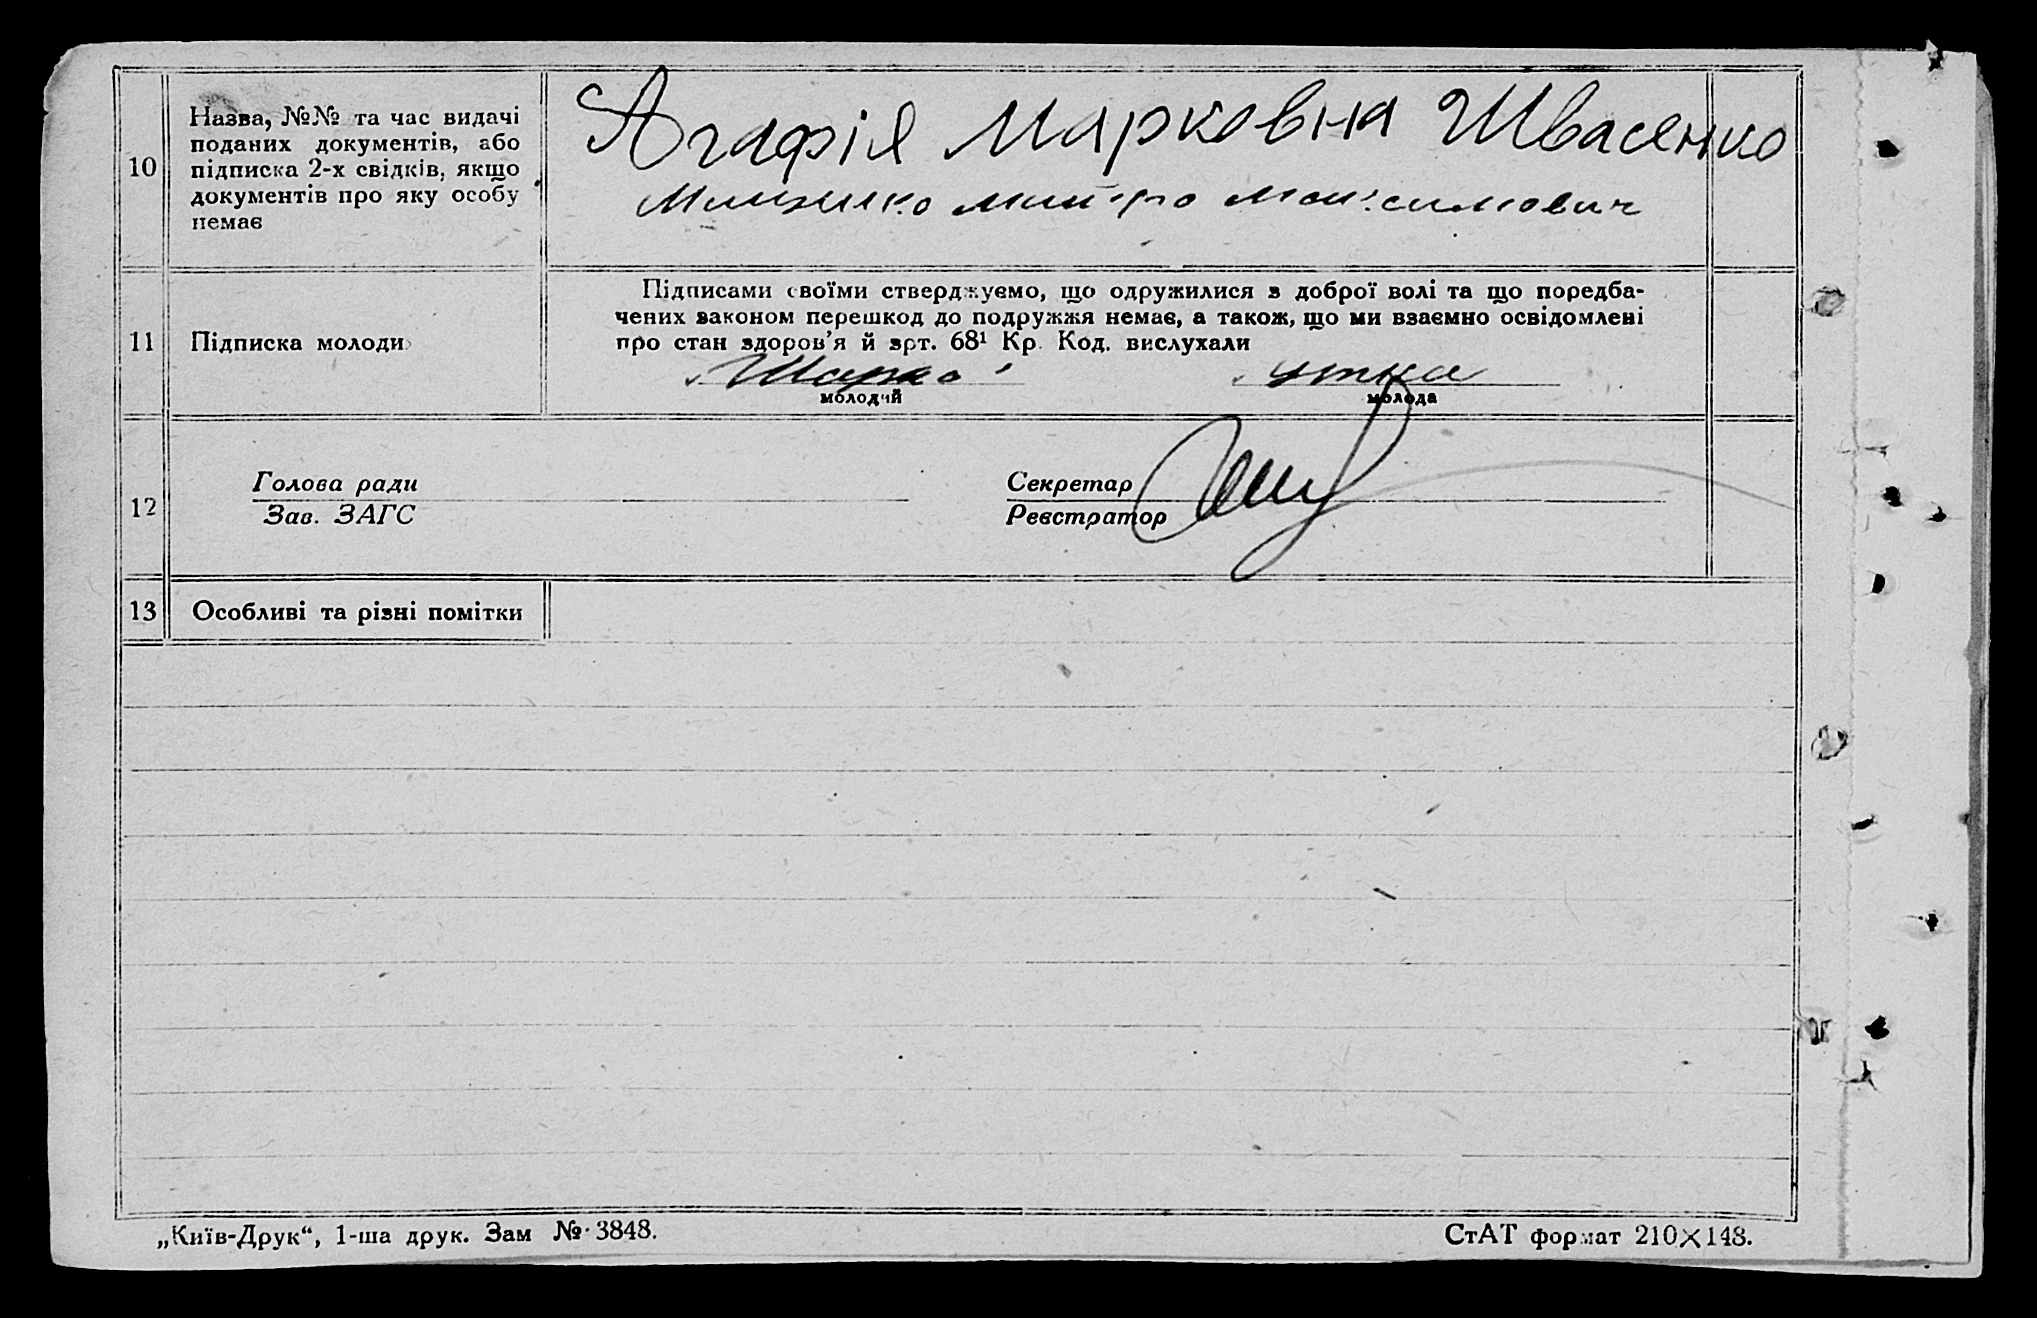 10
Назва, №№ та час видачі
поданих документів, або
підписка 2-х свідків, якщо
документів про яку особу
немає
Агафія Марковна Швасенко
Максимович
11
Підписка молоди
Підписами своїми стверджуємо, що одружилися з доброї волі та що поредба-
чених законом перешкод до подружжя немає, а також, що ми взаємно освідомлені
про стан здоров'я й арт. 68¹ Кр. Код. вислухали
молодий
молода
12
Голова ради
Зав. ЗАГС
Секретар
Реєстратор
13
Особливі та різні помітки
„Київ-Друк“, 1-ша друк. Зам № 3848.
СтАТ формат 210×148.